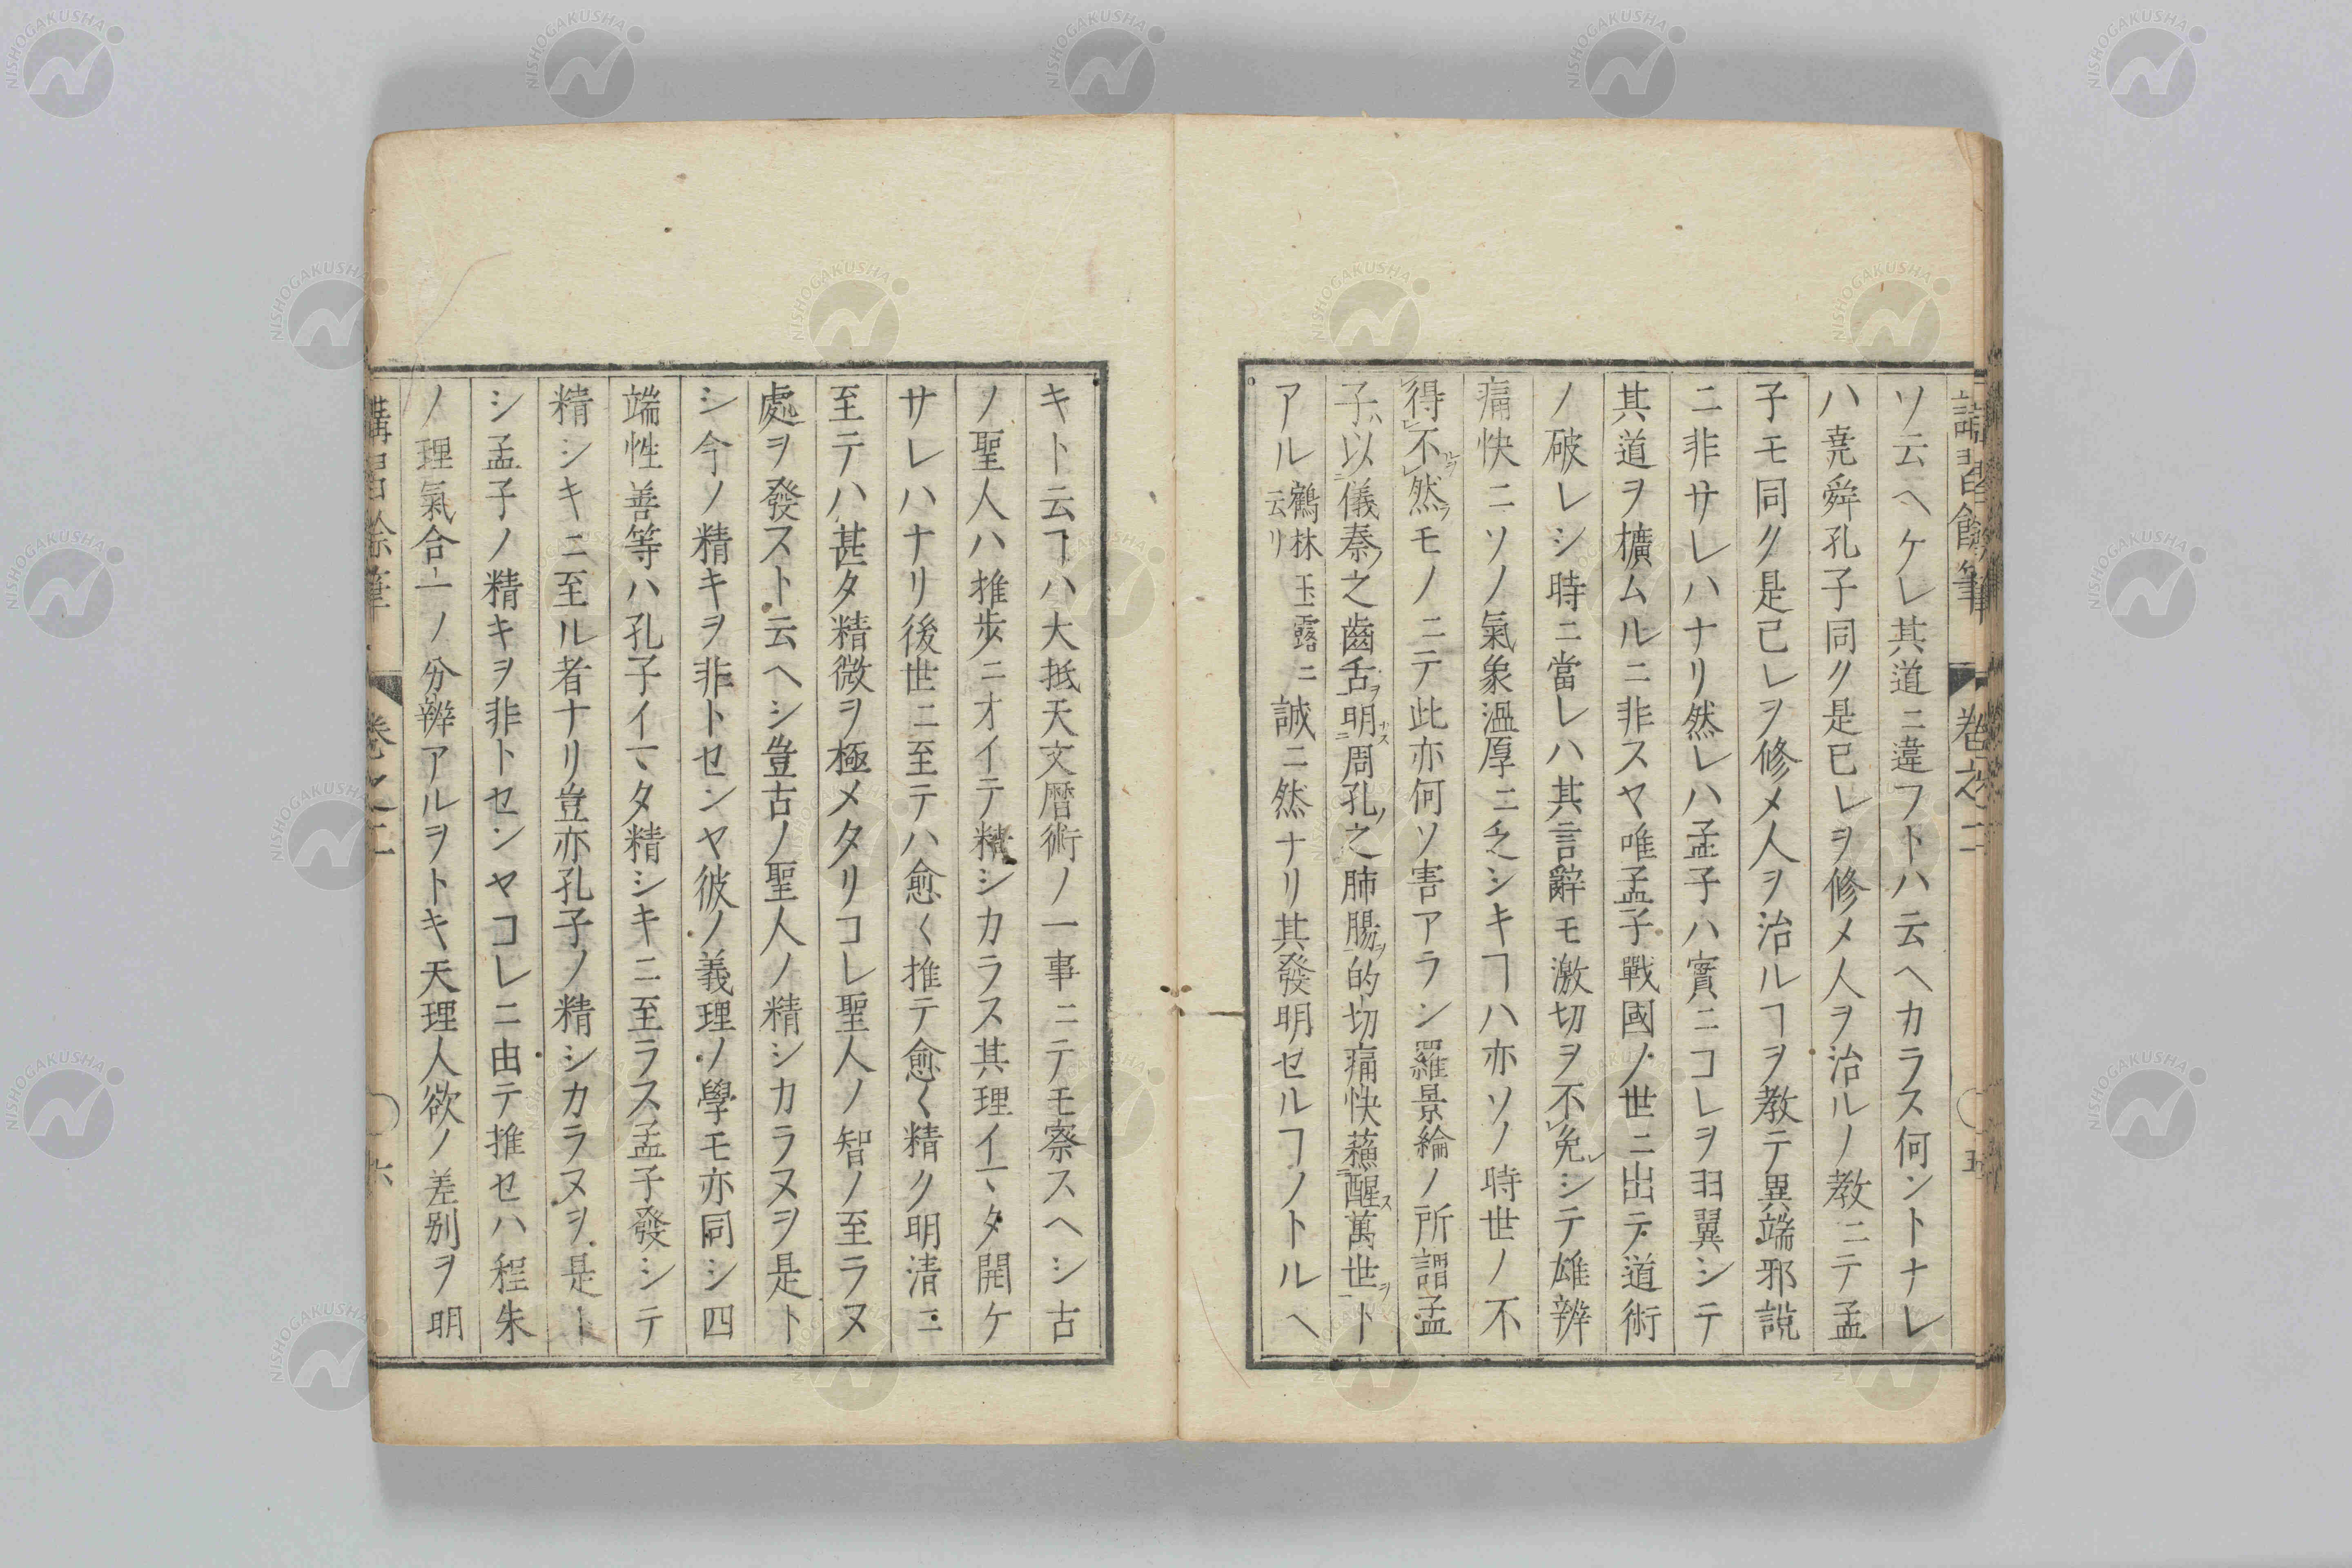 講習餘筆 卷之二 五
ソ云ヘケレ其道ニ違フトハ云ヘカラス何ントナレ
ハ堯舜孔子同ク是已レヲ修メ人ヲ治ルノ教ニテ孟
子モ同ク是已レヲ修メ人ヲ治ルヿヲ教テ異端邪說
ニ非サレハナリ然レハ孟子ハ實ニコレヲ羽翼シテ
其道ヲ擴ムルニ非スヤ唯孟子戰國ノ世ニ出テ道術
ノ破レシ時ニ當レハ其言辭モ激切ヲ不免シテ雄辨
痛快ニソノ氣象溫厚ニ乏シキヿハ亦ソノ時世ノ不
得不ルヲ然ラモノニテ此亦何ソ害アラシ羅景綸ノ所謂孟
子ハ以儀秦ノ之齒舌ヲ明ス周孔ノ之肺腸ヲ的切痛快蘇醒ス萬世ヲト
アル鶴林玉露ニ云リ誠ニ然ナリ其發明セルヿノトルヘ
キト云ヿハ大抵天文曆術ノ一事ニテモ察スヘシ古
ノ聖人ハ推歩ニオイテ精シカラス其理イマタ開ケ
サレハナリ後世ニ至テハ愈〱推テ愈〱精ク明清ニ
至テハ甚タ精微ヲ極メタリコレ聖人ノ智ノ至ラヌ
處ヲ發スト云ヘシ豈古ノ聖人ノ精シカラヌヲ是ト
シ今ノ精キヲ非トセンヤ彼ノ義理ノ學モ亦同シ四
端性善等ハ孔子イマタ精シキニ至ラス孟子發シテ
精シキニ至ル者ナリ豈亦孔子ノ精シカラヌヲ是ト
シ孟子ノ精キヲ非トセンヤコレニ由テ推セハ程朱
ノ理氣合一ノ分辨アルヲトキ天理人欲ノ差別ヲ明
講習餘筆 卷之二 六
NISHOGAKUSHA